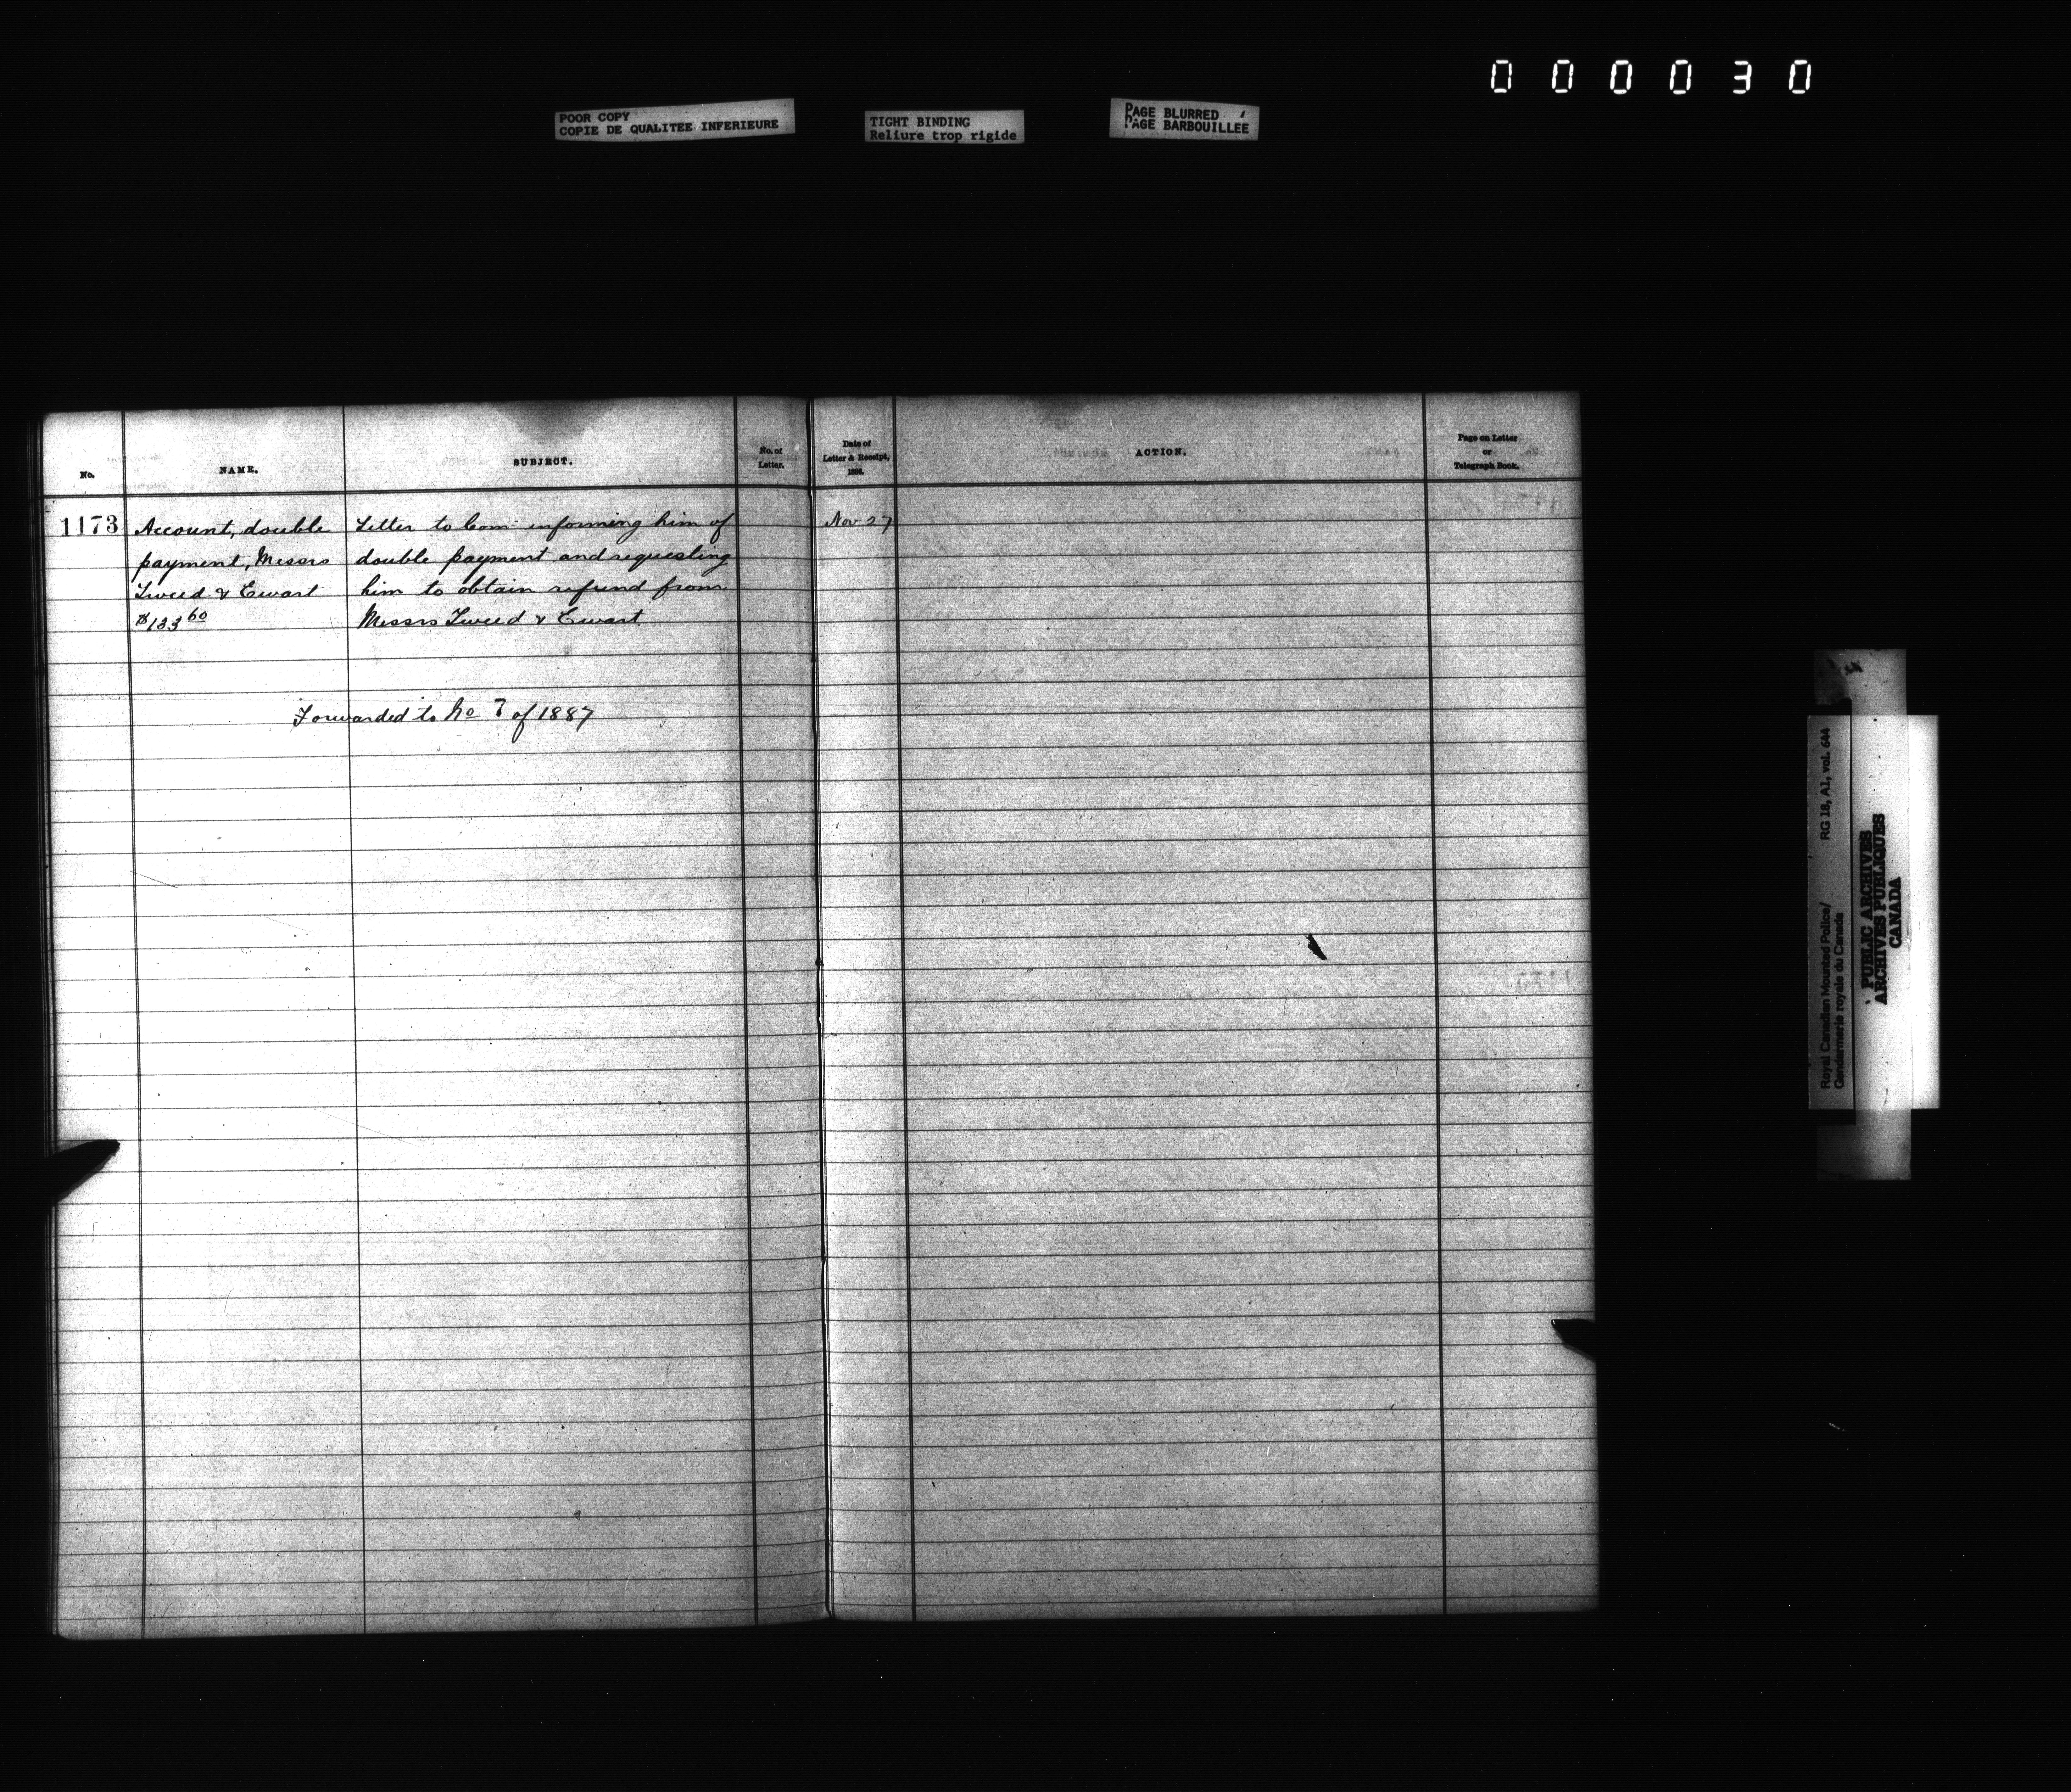 000030
POOR COPY
COPIE DE QUALITEE INFERIEURE
TIGHT BINDING
Reliure trop rigide
PAGE BLURRED
PAGE BARBOUILLEE
No.
NAME.
SUBJECT.
No. of
Letter.
Date of
Letter & Receipt,
188
ACTION.
Page on Letter
or
Telegraph Book.
1173
Account, double
payment, Messrs
Tweed & Ewart
$133 60
Letter to Com: informing him of
double payment and requesting
him to obtain refund from
Messrs Tweed & Ewart
Nov 27
Forwarded to No 7 of 1887
Royal Canadian Mounted Police/
Gendarmerie royale du Canada
RG 18, A1, vol. 644
PUBLIC ARCHIVES
ARCHIVES PUBLIQUES
CANADA